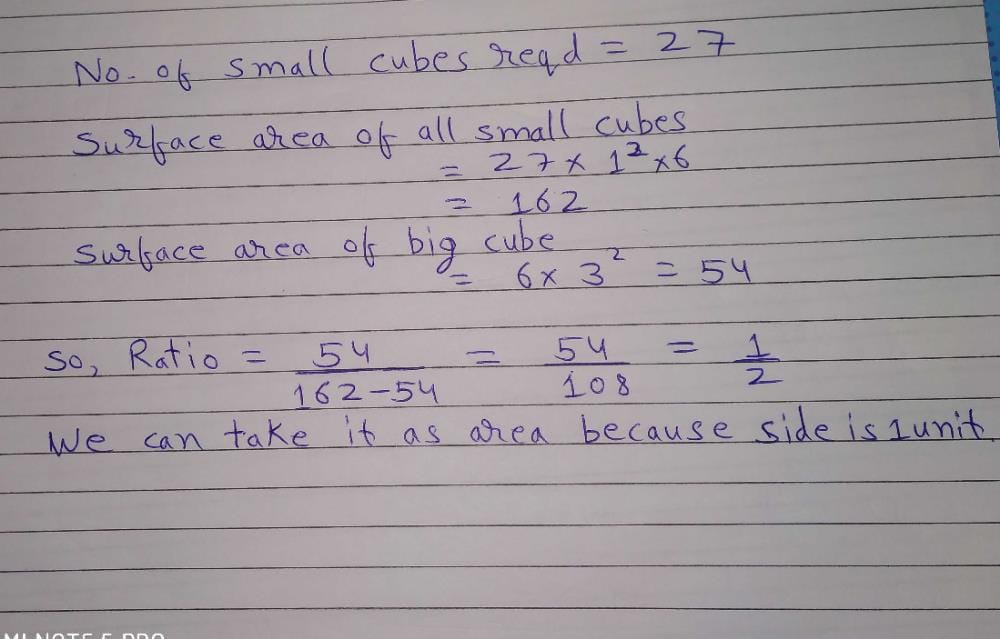 No. of small cubes reqd = 27
Surface area of all small cubes
= 27 × 1² × 6
= 162
Surface area of big cube
= 6 × 3² = 54
So, Ratio = 54/162-54 = 54/108 = 1/2
We can take it as area because side is 1unit.
MI NOTE 5 PRO